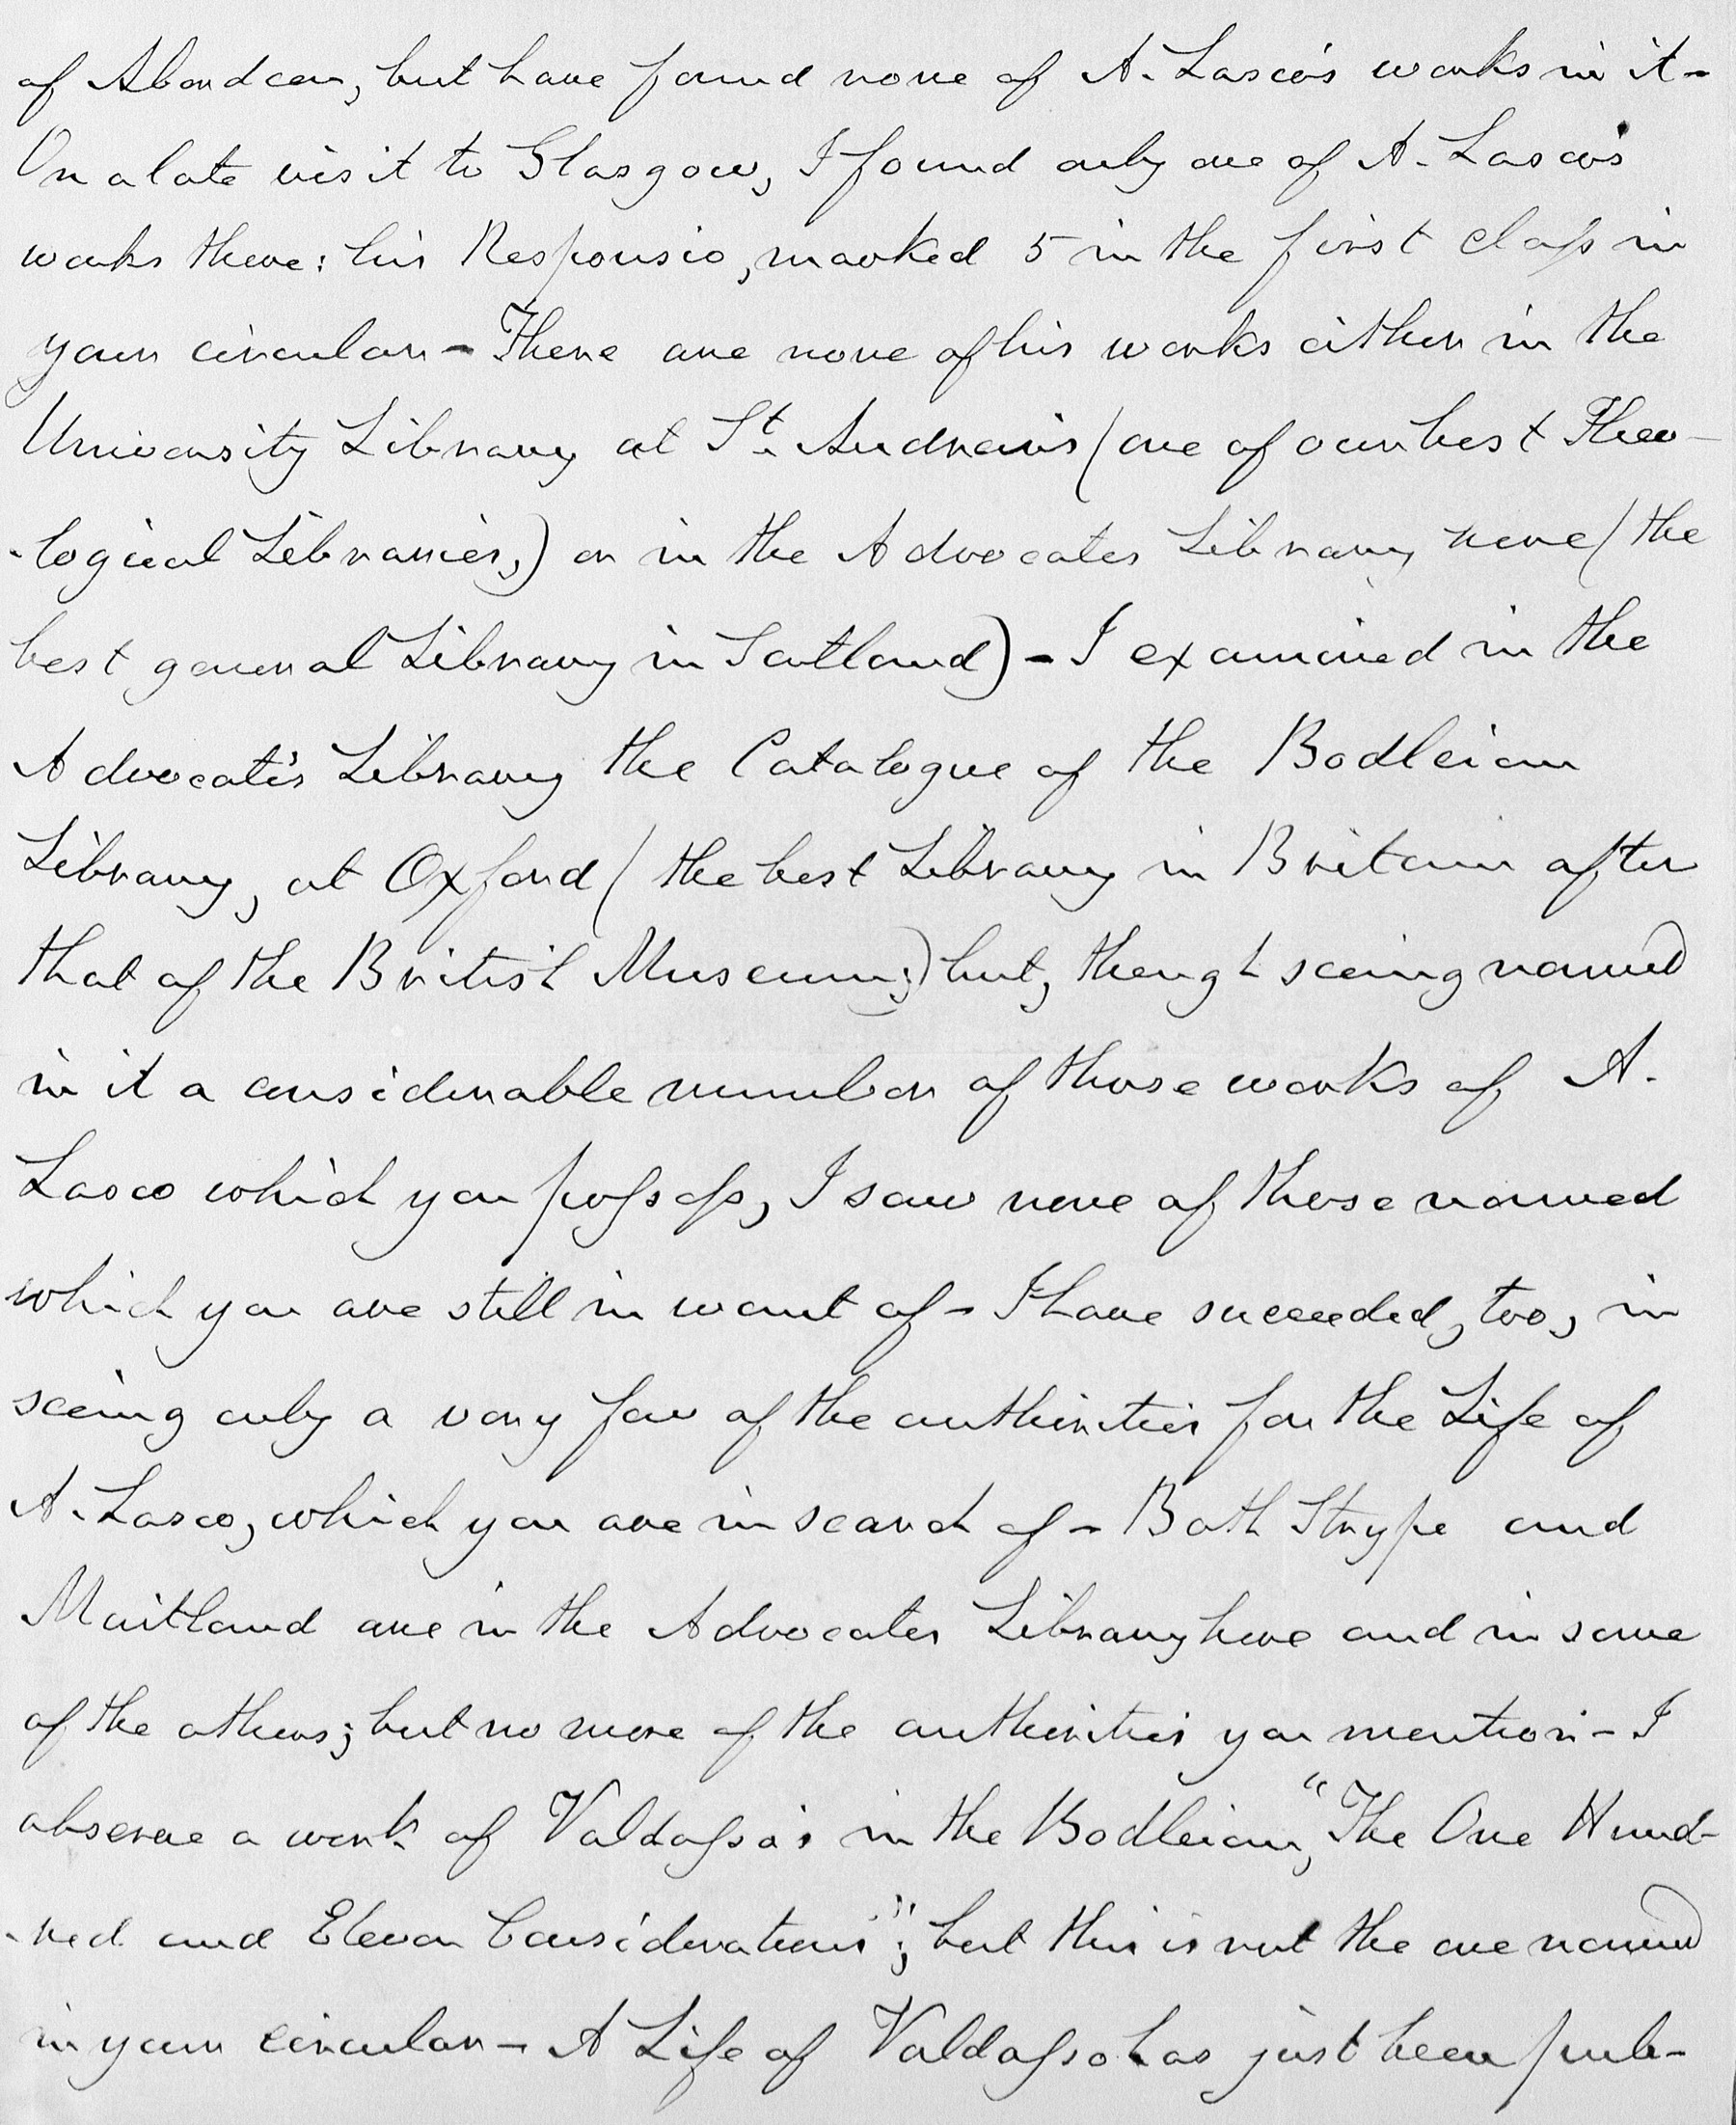 of Aberdeen, but have found none of A. Lasco's works in it -
On a late visit to Glasgow, I found only one of A. Lasco's
works there: his Responsio, marked 5 in the first class in
your circular - There are none of his works either in the
University Library at St. Andrew's (one of our best Theo-
-logical Libraries,) or in the Advocates Library here (the
best general Library in Scotland) - I examined in the
Advocate's Library the Catalogue of the Bodleian
Library, at Oxford (the best Library in Britain after
that of the British Museum;) but, though seeing named
in it a considerable number of those works of A.
Lasco which you possess, I saw none of those named
which you are still in want of - I have succeeded, too, in
seeing only a very few of the authorities for the Life of
A. Lasco, which you are in search of - Both Strype and
Maitland are in the Advocates Library here and in some
of the others; but no more of the authorities you mention - I
observe a work of Valdasso's in the Bodleian, "The One Hund-
-red and Eleven Considerations"; but this is not the one named
in your circular - A Life of Valdasso has just been pub-